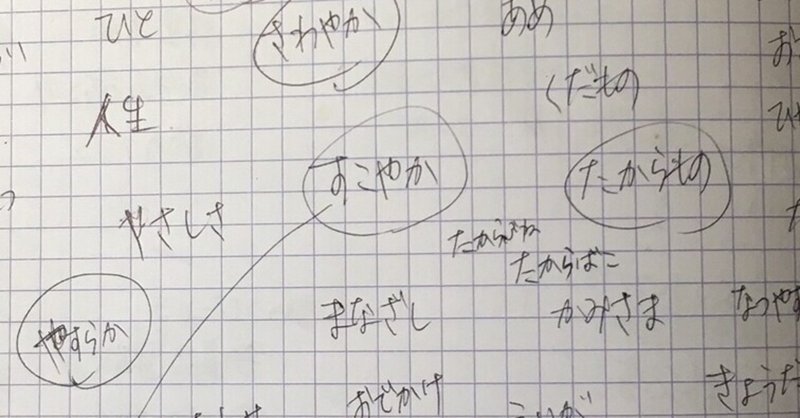 ひと
さわやか
あめ
くだもの
人生
すこやか
たからもの
やさしさ
たからぶね
たからばこ
やすらか
まなざし
かみさま
おでかけ